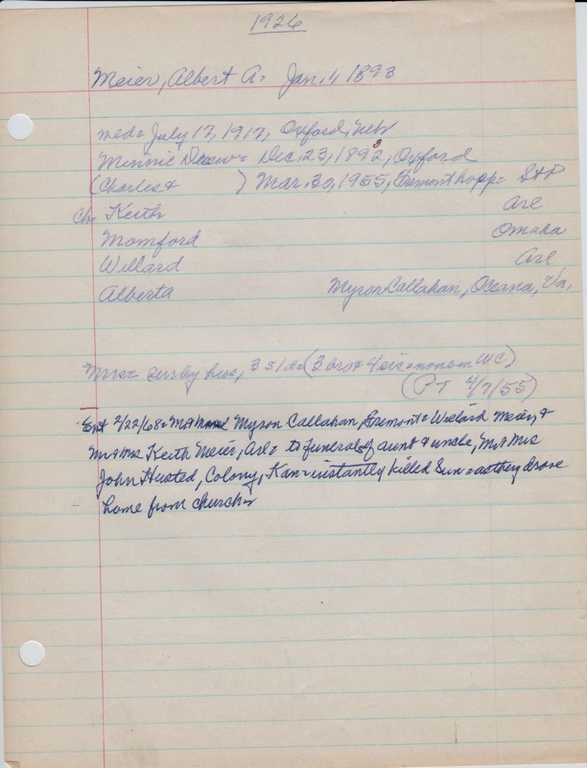 1926
Meier, Albert A = Jan. 11, 1893
med = July 17, 1917, Oxford, Neb
Minnie Drew = Dec. 23, 1893, Oxford
(Charles & ) Mar. 30, 1955, Fremont hopp =
Ch = Keith Arl
Momford Omaha
Willard Arl
Alberta Myron Callahan, Oceana, Va,
Mrs = surv by hus, 3 s 1 d = (3 bro & 4 sis = none in WC)
(PT 4/7/55)
Ent 2/22/68 = M & M Myron Callahan, Fremont = Willard Meier, &
Mr & Mrs Keith Meier, Arl = to funeral of aunt & uncle, M & Mrs
John Husted, Colony, Kan = instantly killed Sun = as they drove
home from church =